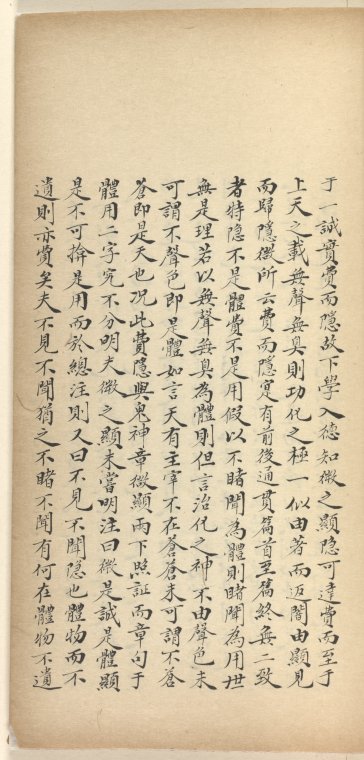 于一誠實費而隱故下學入德知微之顯隐可達費而至于
上天之載無聲無臭則功化之極一似由著而返闇由顯見
而歸隱微所云費而隱寔有前後通貫篇首至篇終無二致
者特隐不是體費不是用假以不睹聞為體則睹聞為用世
無是理若以無聲無臭為體則但言治化之神不由聲色未
可謂不聲色即是體如言天有主宰不在蒼蒼未可謂不蒼
蒼即是天也况此費隱與鬼神章微顯兩下照証而章句于
體用二字究不分明夫微之顯未嘗明注曰微是誠是體顯
是不可揜是用而於總注則又曰不見不聞隱也體物而不
遺則亦費矣夫不見不聞猶之不睹不聞有何在體物不遺